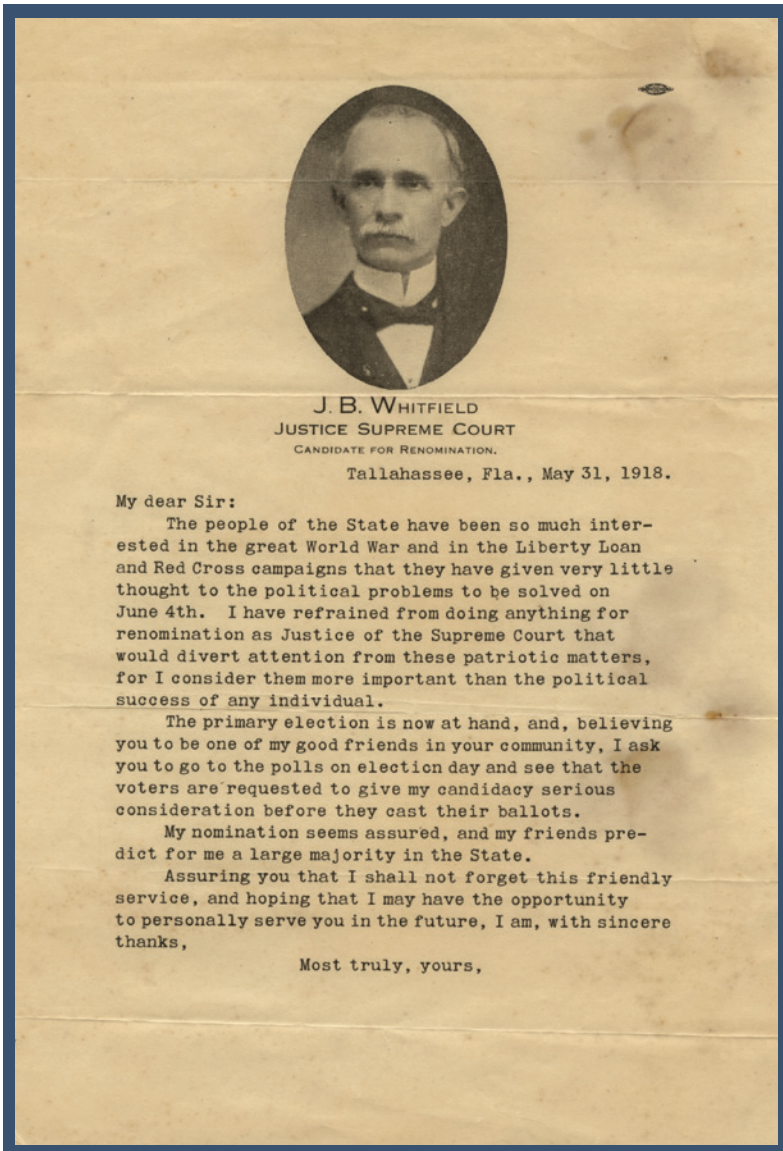 J. B. WHITFIELD
JUSTICE SUPREME COURT
CANDIDATE FOR RENOMINATION.
Tallahassee, Fla., May 31, 1918.
My dear Sir:
The people of the State have been so much inter-
ested in the great World War and in the Liberty Loan
and Red Cross campaigns that they have given very little
thought to the political problems to be solved on
June 4th. I have refrained from doing anything for
renomination as Justice of the Supreme Court that
would divert attention from these patriotic matters,
for I consider them more important than the political
success of any individual.
The primary election is now at hand, and, believing
you to be one of my good friends in your community, I ask
you to go to the polls on election day and see that the
voters are requested to give my candidacy serious
consideration before they cast their ballots.
My nomination seems assured, and my friends pre-
dict for me a large majority in the State.
Assuring you that I shall not forget this friendly
service, and hoping that I may have the opportunity
to personally serve you in the future, I am, with sincere
thanks,
Most truly, yours,